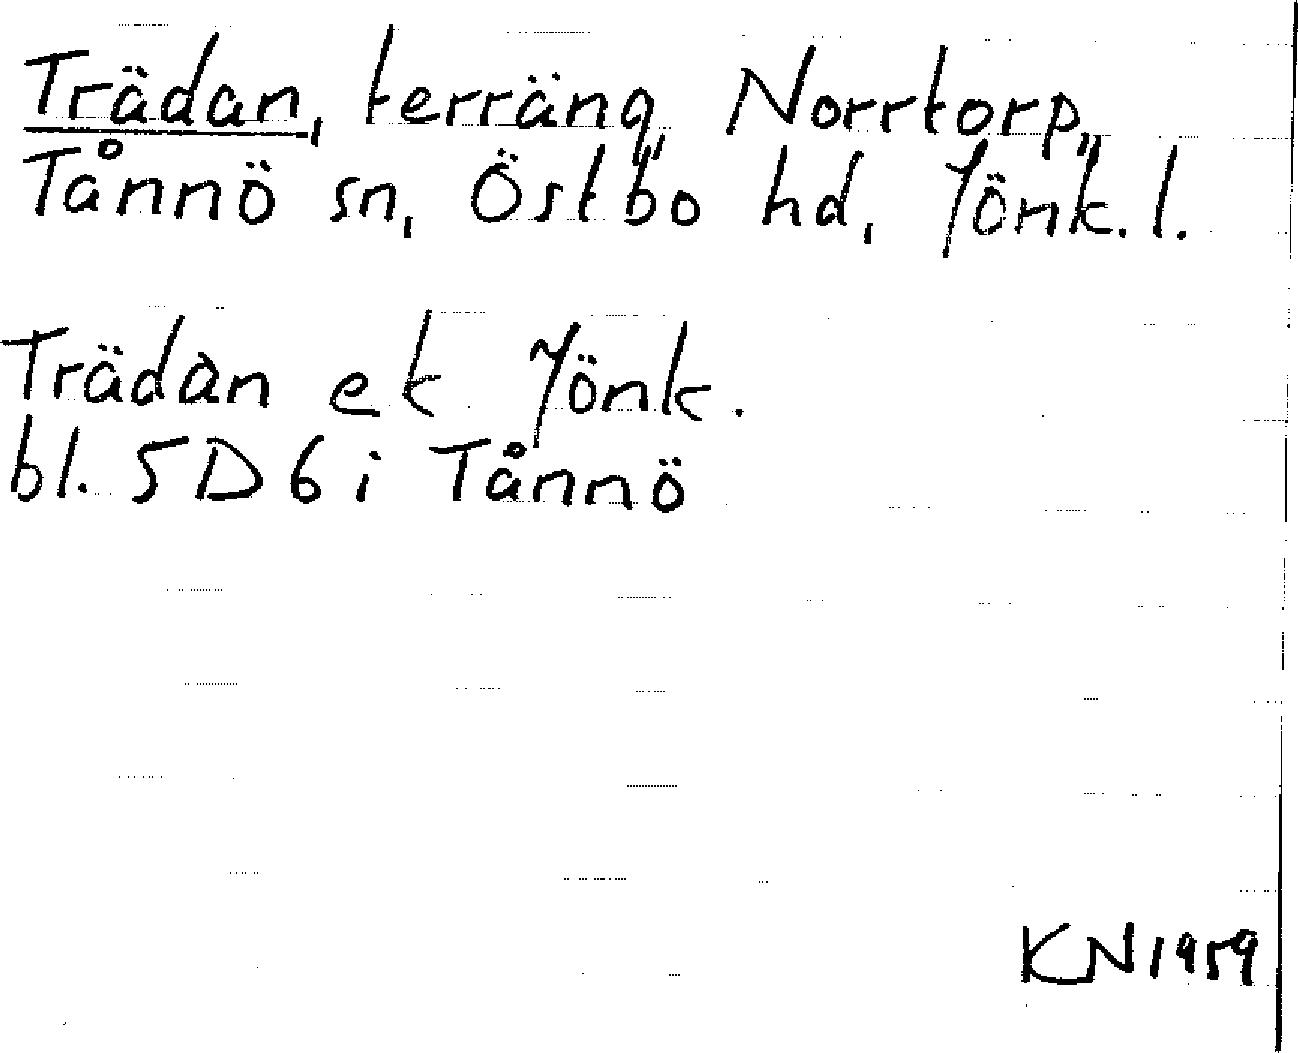 Trädan, terräng, Norrtorp,
Tånnö sn, Östbo hd, Jönk. l.
Trädan ek Jönk.
bl. 5D6i Tånnö
KN 1959